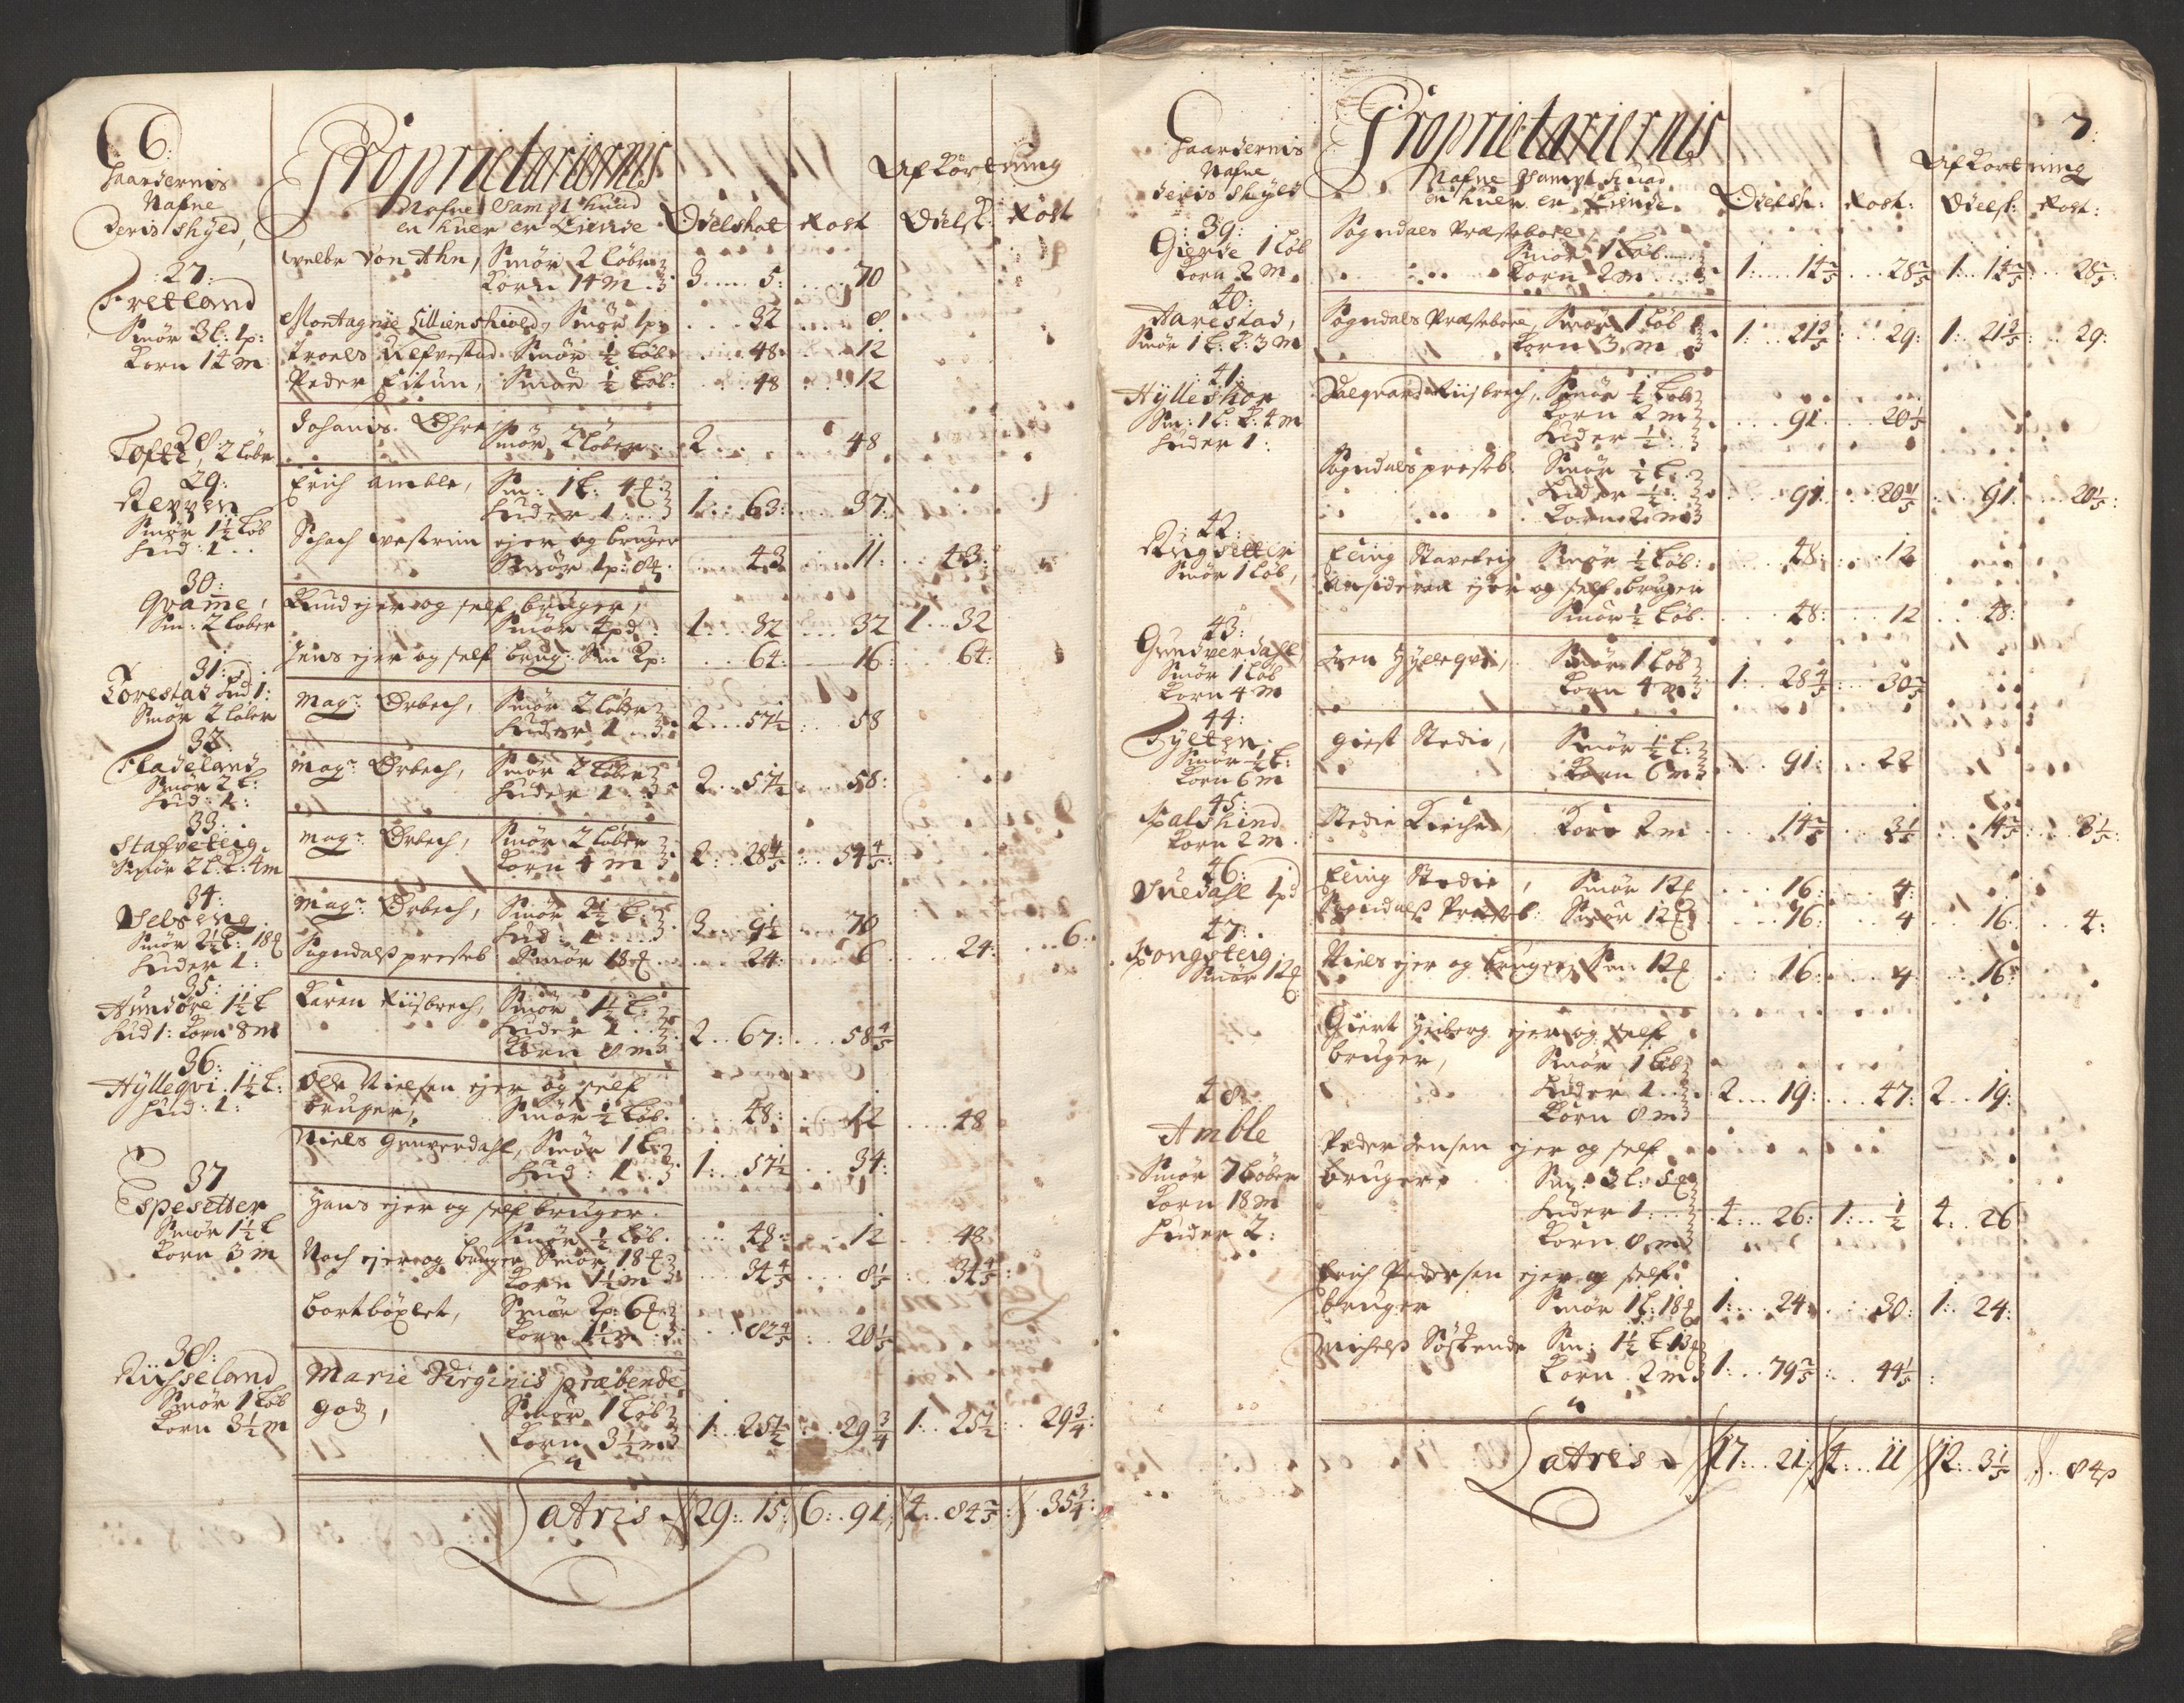 6:
Gaardernis
Nafne
Deris skyld,
Proprietariernis
Nafne Sampt huad
en huer er Eiende
Odelskat Rost
Afkortning
Odelsk: Rost
27:
Fretland
Smør 3 l: 1 p:
Korn 14 m
welbr von Ahn, Smør 2 løber
Korn 14 m 3 5: 70
Montagnie Lillienskiold, Smør 1 p: 32 8
Troels Refvestad Smør ½ løb: 48 12
Peder Eitun, Smør ½ løb: 48 12
28:
Tofte, 2 løbr
Johanis Øhre
Smør 2 løber 2 48
29:
Revven
Smør 1½ løb
Hud: 1
Erich Amble, Sm: 1 l: 4
Huder 1 1: 63: 37:
ejer og bruger
Smør 1 p: 43 11: 43:
30:
Qvame,
Sm: 2 løber
Knud ejer og self bruger,
Smør 4 pd 1: 32 32 1: 32
Jens ejer og self brug: Sm 2 p: 64: 16: 64:
31:
Torestad hud 1:
Smør 2 løber
Magr: Ørbech, Smør 2 løber
Huder 1 2 57½ 58
32
Fladeland
Smør 2 l:
Hud: 1:
Magr: Ørbech, Smør 2 løber
Huder 1 2 57½ 58:
33:
Stafveteig
Smør 2 l: k: 4 m
Magr: Ørbech, Smør 2 løber
Korn 4 m 2: 28 4/5 54 4/5
34:
Selseng
Smør 2½ l: 18
Huder 1:
Magr: Ørbech, Smør 2½ l:
Hud: 1 3 9½ 70
Sogndalss presteb: Smør 18 24: 6 24: 6:
35:
Hundøre 1½ l
Hud 1: Korn 8 m
Karen Riisbrech, Smør 1½ l:
Huder 1
Korn 8 m 2 67: 58 4/5
36:
Hylleqvi 1½ l:
Hud: 1:
Ole Nielsen ejer og self
bruger, Smør ½ løb: 48: 12 48
Niels Gunverdahl, Smør 1 l:
Hud: 1 1: 57½ 34:
37
Espesetter
Smør 1½ l
Korn 3 m
Hans ejer og self bruger.
Smør ½ løb. 48: 12 48
Noch ejer og bruger Smør 18
Korn 1½ m 34 4/5 8 1/5 34 4/5
bortböxlet, Smør 2 p: 6
Korn 1½ m 82 4/5 20 1/5
38:
Riisseland
Smør 1 løb
Korn 3½ m
Marie Virginiis præbende
godz, Smør 1 løb
Korn 3½ m 1: 25½ 29¾ 1: 25½ 29¾
Latris 29: 15: 6: 91: 4: 84 2/5 35¾
7:
Gaardernis
Nafne
deris skyld
Proprietariernis
Nafne Sampt huad
en huer er Eiende
Odelsk: Rost:
Afkortning
Odelsk: Rost:
39:
Gierde 1 løb
Korn 2 m
Sogndals Præstebole
Smør 1 løb
Korn 2 m 1: 14 2/5 28 2/5 1: 14 2/5 28 2/5
40:
Aarestad,
Smør 1 l: k: 3 m
Sogndals Præstebole, Smør 1 løb
Korn 3 m 1: 21 3/5 29: 1: 21 3/5 29:
41:
Hylleskor
Sm: 1 l: k: 4 m
Huder 1:
Riisbrech, Smør ½ løb
Korn 2 m
Huder ½ 91 20 1/5
Sogndals presteb: Smør ½ l:
Huder ½
Korn 2 m 91: 20 1/5 91: 20 1/5
42:
Ringsetter
Smør 1 løb,
Elling Stafveteig Smør ½ løb: 48: 12
ejer og self bruger
Smør ½ løb. 48: 12 48:
43:
Gundverdahl
Smør 1 løb
Korn 4 m
Hylleqvi, Smør 1 løb
Korn 4 m 1: 28 4/5 30 2/5
44:
Hylten:
Smør ½ l:
Korn 6 m
Giest Stedie, Smør ½ l:
Korn 6 m 91: 22
45:
Palshind
Korn 2 m
Stedie Kirche, Korn 2 m 14 2/5 3½ 14 2/5 3½
46:
Suedahl 1 pd
Elling Stedie, Smør 12 16: 4:
Sogndalss Presteb: Smør 12 16: 4 16: 4:
47:
Pongsteig
Smør 12
Niels ejer og bruger, Sm: 12 16: 4 16:
48
Amble
Smør 7 løber
Korn 18 m
Huder 2:
Giert Heiberg ejer og self
bruger, Smør 1 løb
Huder 1
Korn 8 m 2 19: 47: 2 19:
Peder Jensen ejer og self
bruger, Sm: 3 l: 5
Huder 1:
Korn 8 m 4: 26: 1: ½ 4: 26
Erich Pedersen ejer og self
bruger Smør 1 l: 18 1: 24 30: 1: 24:
Michelss Söskende Sm: 1½ l: 13
Korn 2 m 1: 79 2/5 44 1/5
Latris 17: 21: 4: 11 12: 3 1/5 84